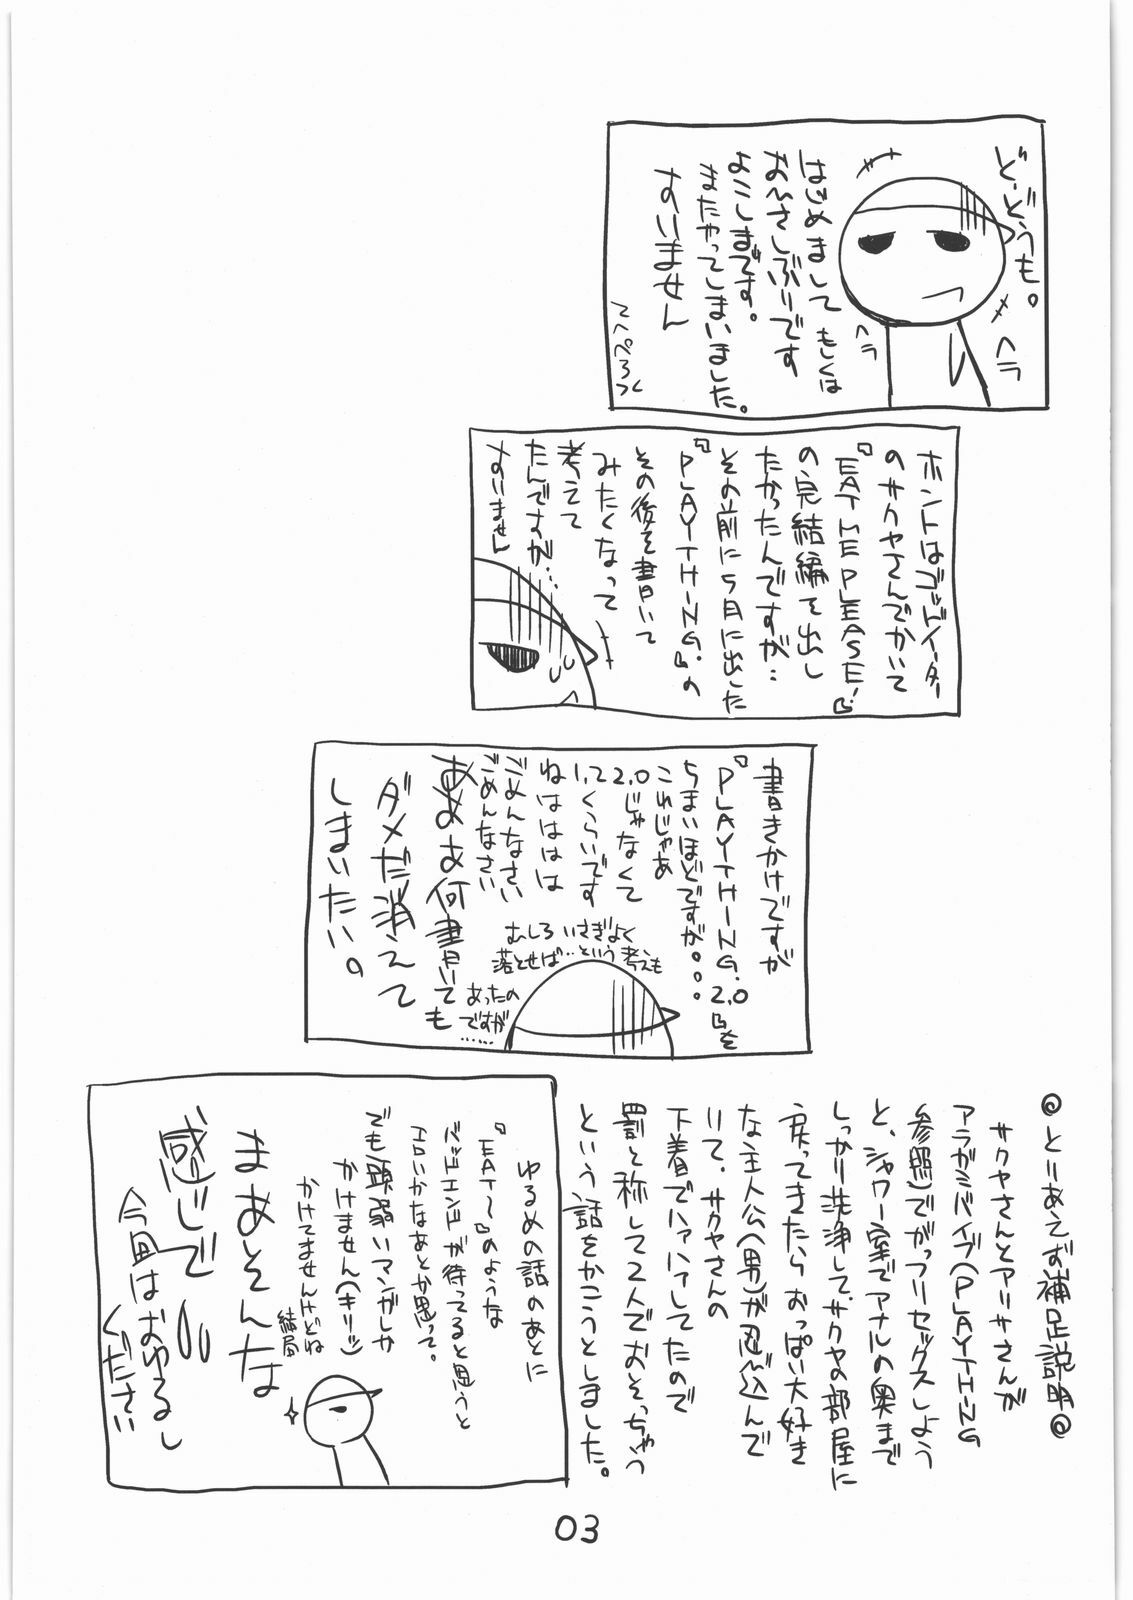 ど、どうも。
ヘラ
ヘラ
はじめまして もしくは
おひさしぶりです
よこしまです。
またやってしまいました。
すいません
ホントはゴッドイーター
のサクヤさんでかいて
『EAT ME PLEASE!』
の完結編を出し
たかったんですが…
その前に5月に出した
『PLAYTHING.』の
その後を書いて
みたくなって
考えて
たんですが…
すいません
書きかけですが
『PLAYTHING.2.0』を
ちまいほどですが…
これじゃあ
2.0じゃなくて
1.てくらいです
ねはははは
ごめんなさい
ごめんなさい
ああぁ何書いても
ダメだ消えて
しまいたい。
むしろいさぎよく
落とせば…という考えも
あったの
ですが
……
◎とりあえず補足説明◎
サクヤさんとアリサさんが
アラガミバイブ(PLAYTHING
参照)でがっつりセックスしよう
と、シャワー室でアナルの奥まで
しっかり洗浄して、サクヤの部屋に
戻ってきたら おっぱい大好き
な主人公(男)が忍び込んで
いて、サクヤさんの
下着でハァハァしてたので
罰と称して2人でおそっちゃう
という話をかこうとしました。
ゆるめの話のあとに
『EAT～』のような
バッドエンドが待ってると思うと
エロいかなあとか思って。
でも頭弱いマンガしか
かけません(キリッ)
かけてませんけどね
結局
まあそんな
感じで
今回はおゆるし
ください
03